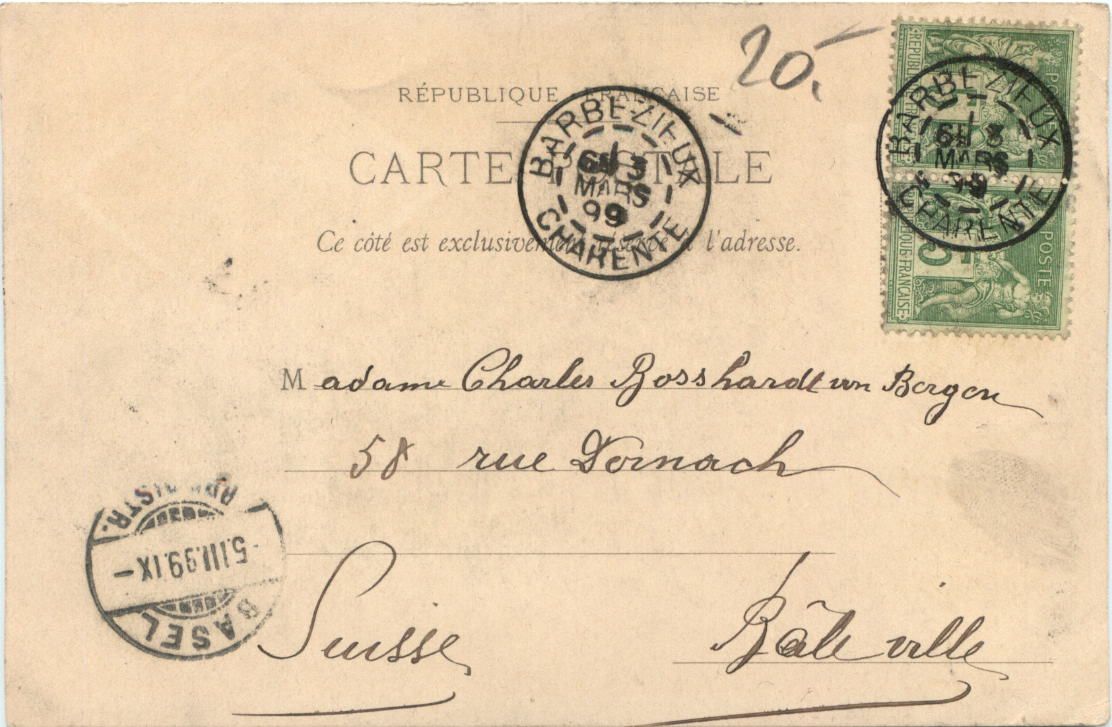 20.-
RÉPUBLIQUE FRANÇAISE
CARTE POSTALE
Ce côté est exclusivement réservé à l'adresse.
BARBEZIEUX
3
MARS
99
CHARENTE
BARBEZIEUX
3
MARS
99
CHARENTE
POSTE
REPUBLIQUE FRANÇAISE
5
POSTE
REPUBLIQUE FRANÇAISE
5
Madame Charles Bosshardt von Bergen
58 rue Dornach
Suisse
Bâle ville
BASEL
-5.III.99.IX-
DISTR.